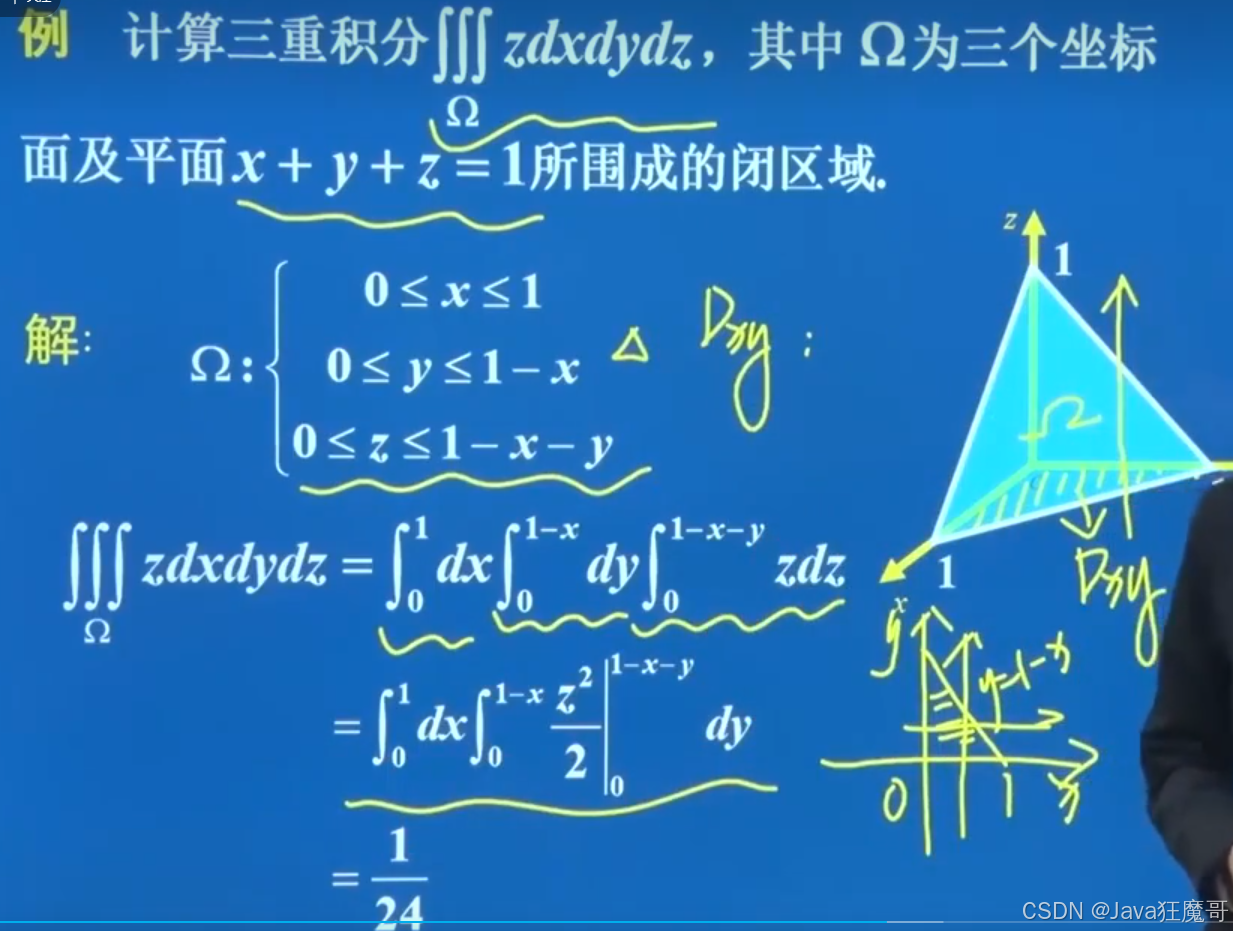 例 计算三重积分∭_Ω zdxdydz，其中 Ω为三个坐标
面及平面x + y + z = 1所围成的闭区域.
解:
Ω: { 0 ≤ x ≤ 1
0 ≤ y ≤ 1 − x
0 ≤ z ≤ 1 − x − y
△ Dxy :
z
1
Ω
1
x
Dxy
∭_Ω zdxdydz = ∫_0^1 dx ∫_0^{1−x} dy ∫_0^{1−x−y} zdz
= ∫_0^1 dx ∫_0^{1−x} z²/2 |_0^{1−x−y} dy
y
y=1-x
0 1 x
= 1/24
CSDN @Java狂魔哥